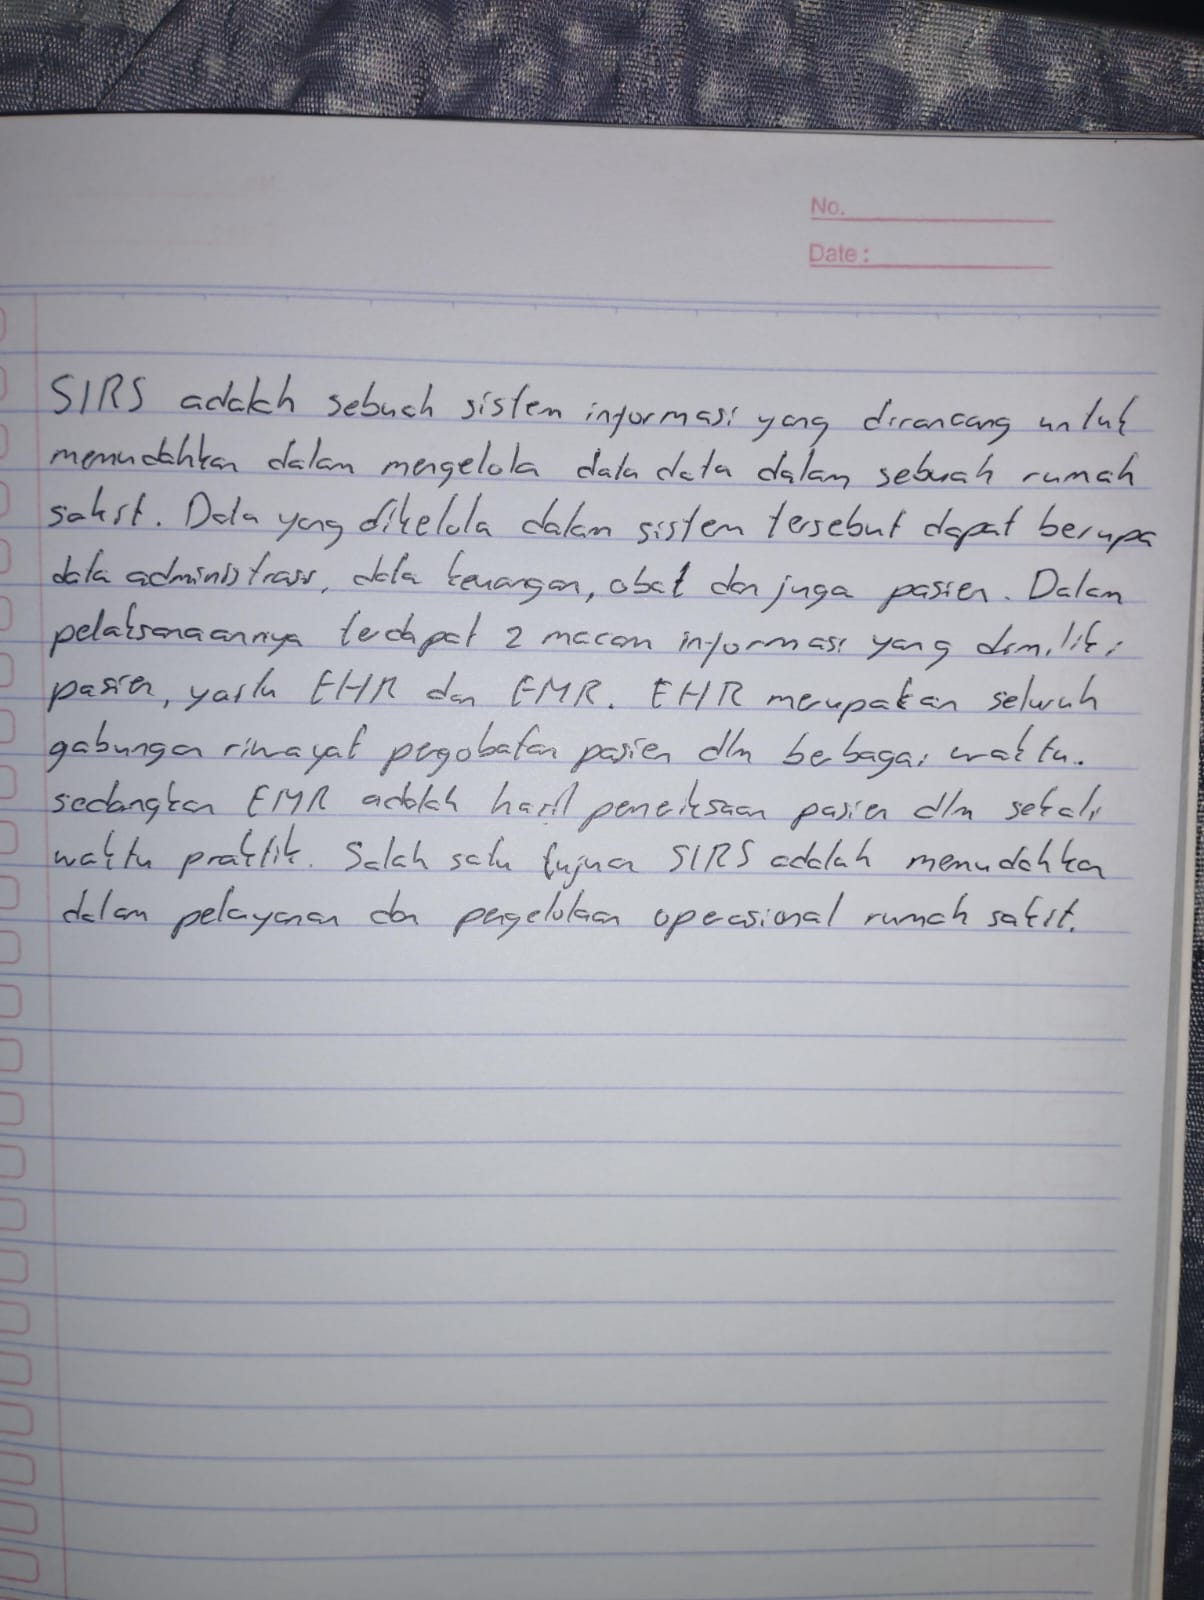 No.
Date :
SIRS adalah sebuah sistem informasi yang dirancang untuk
memudahkan dalam mengelola data data dalam sebuah rumah
sakit. Data yang dikelola dalam sistem tersebut dapat berupa
data administrasi, data keuangan, obat dan juga pasien. Dalam
pelaksanaannya terdapat 2 macam informasi yang dimiliki
pasien, yaitu EHR dan EMR. EHR merupakan seluruh
gabungan riwayat pengobatan pasien dlm berbagai waktu.
sedangkan EMR adalah hasil pemeriksaan pasien dlm sekali
waktu praktik. Salah satu tujuan SIRS adalah memudahkan
dalam pelayanan dan pengelolaan operasional rumah sakit.